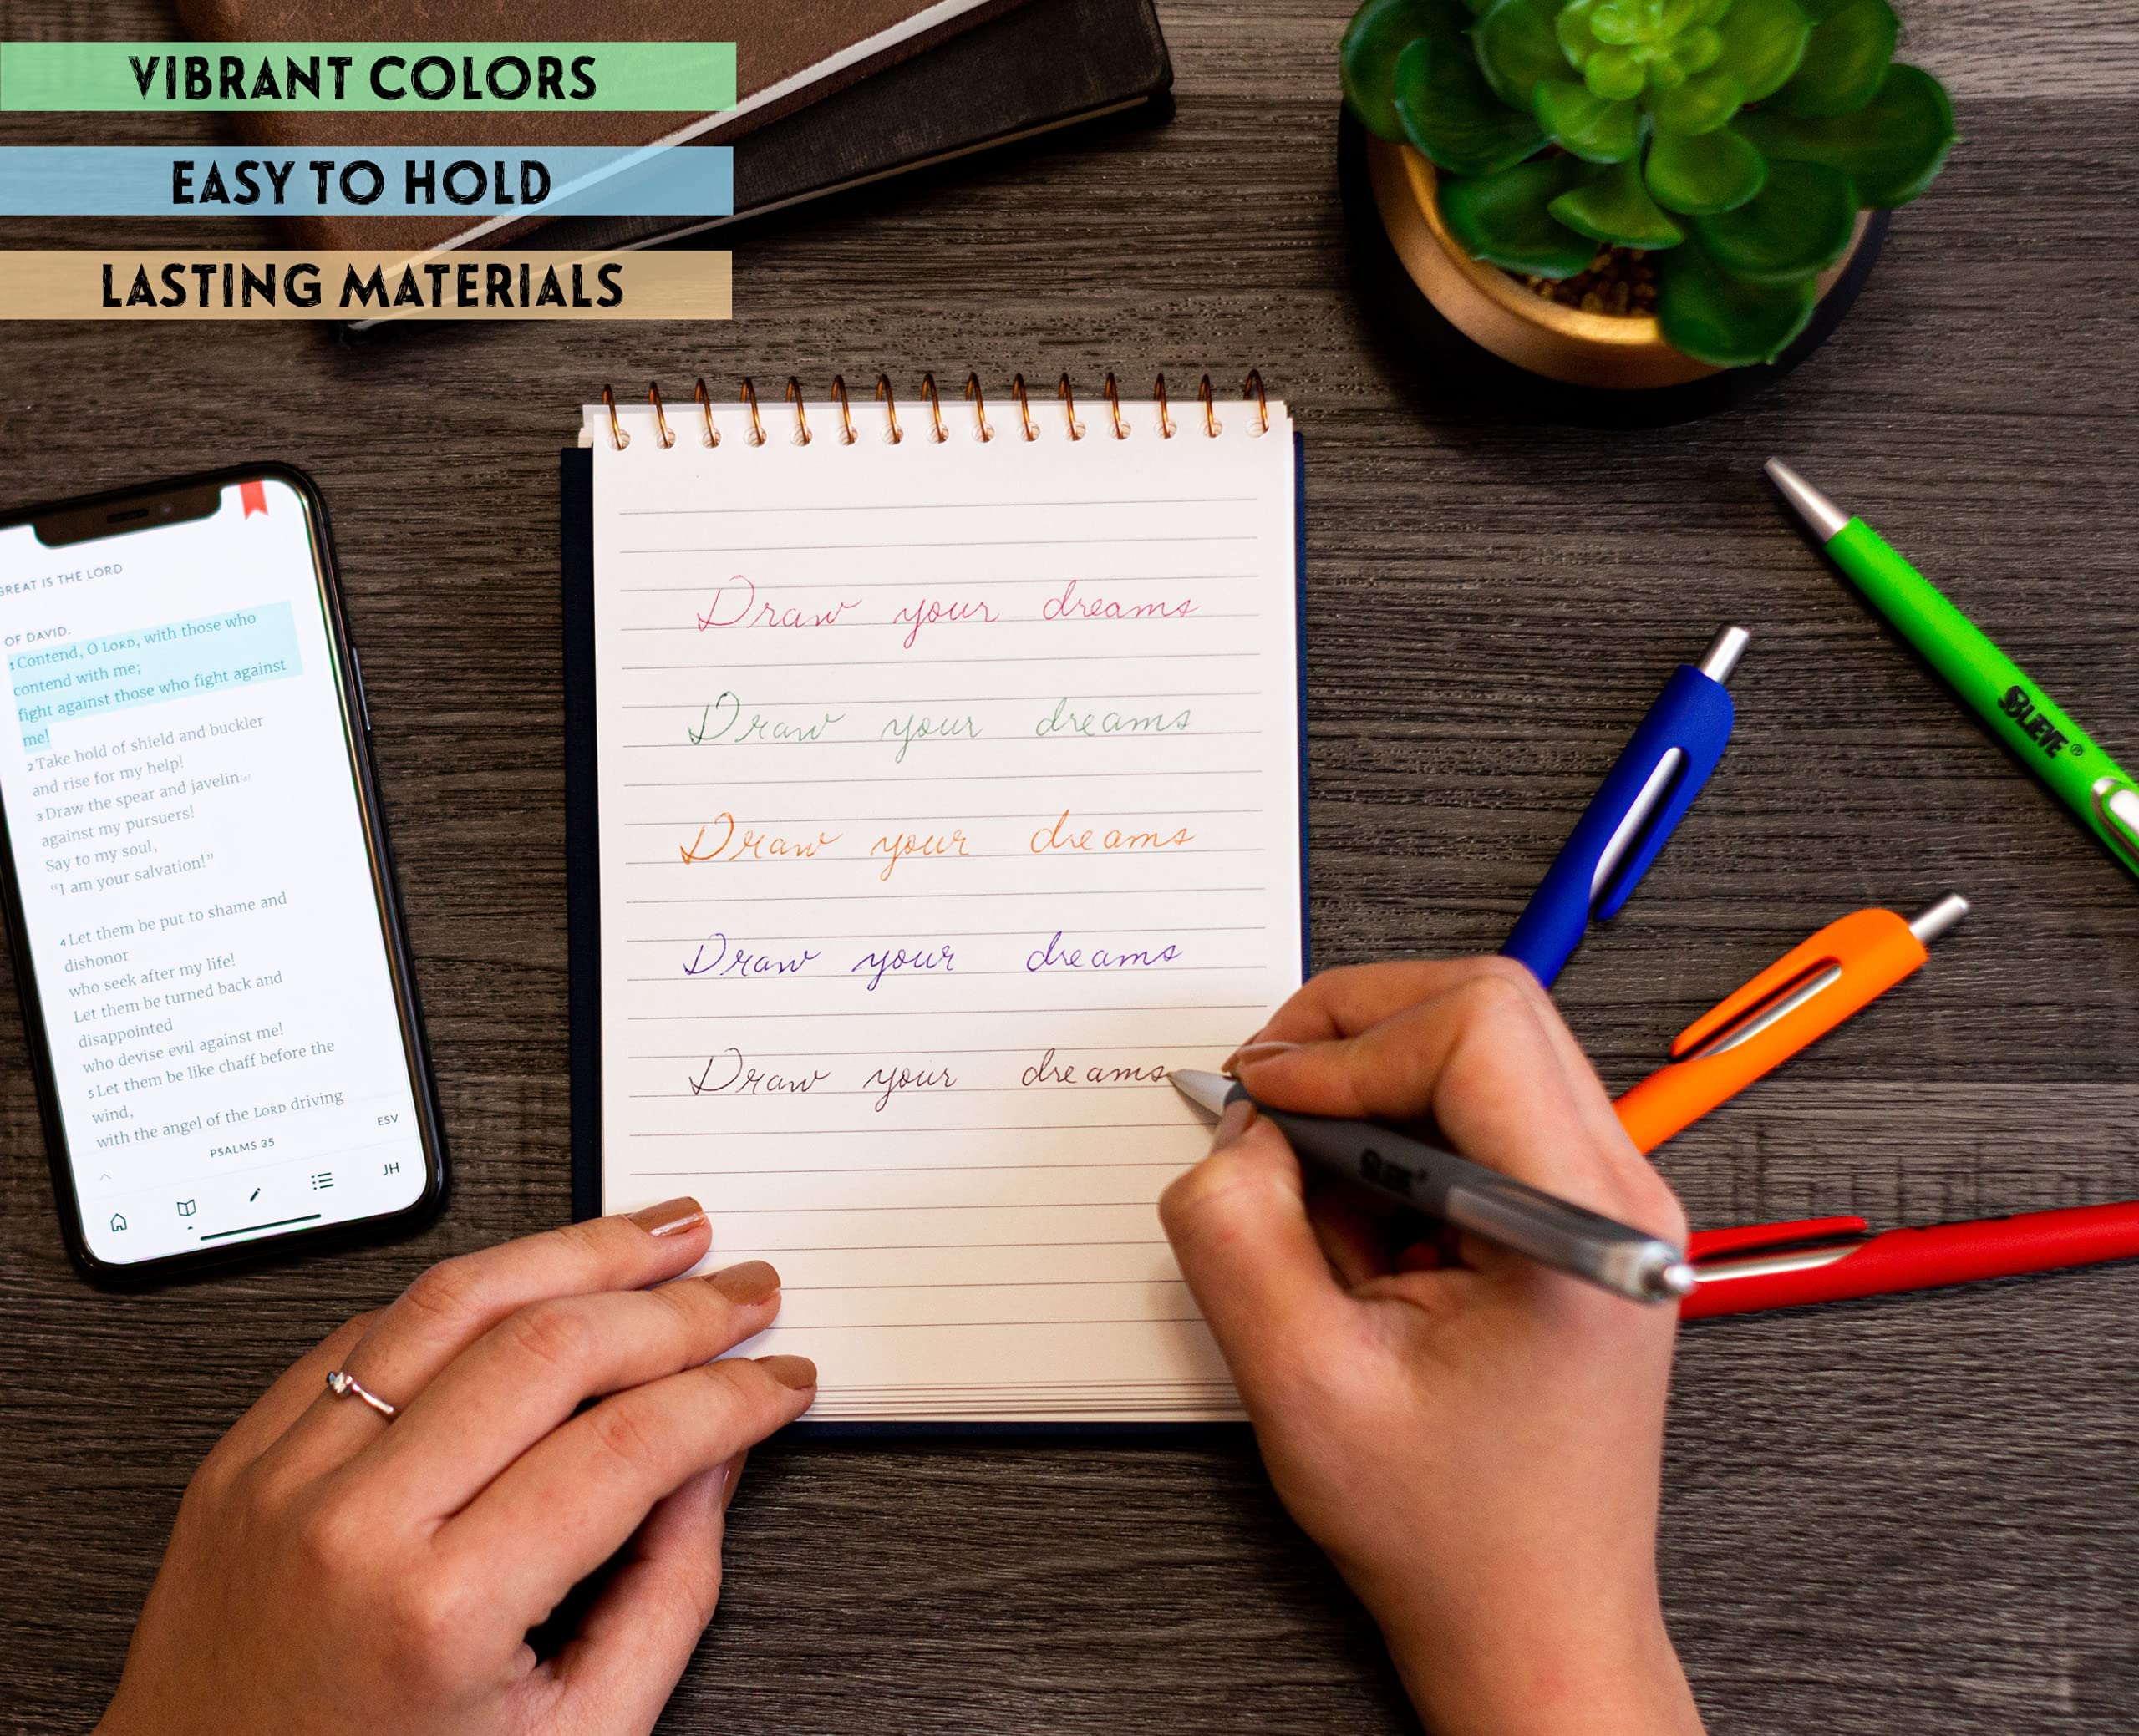 VIBRANT COLORS
EASY TO HOLD
LASTING MATERIALS
GREAT IS THE LORD
OF DAVID.
1 Contend, O LORD, with those who
contend with me;
fight against those who fight against
me!
2 Take hold of shield and buckler
and rise for my help!
3 Draw the spear and javelin[a]
against my pursuers!
Say to my soul,
“I am your salvation!”
4 Let them be put to shame and
dishonor
who seek after my life!
Let them be turned back and
disappointed
who devise evil against me!
5 Let them be like chaff before the
wind,
with the angel of the LORD driving
PSALMS 35
ESV
JH
Draw your dreams
Draw your dreams
Draw your dreams
Draw your dreams
Draw your dreams
SBLIEVE®